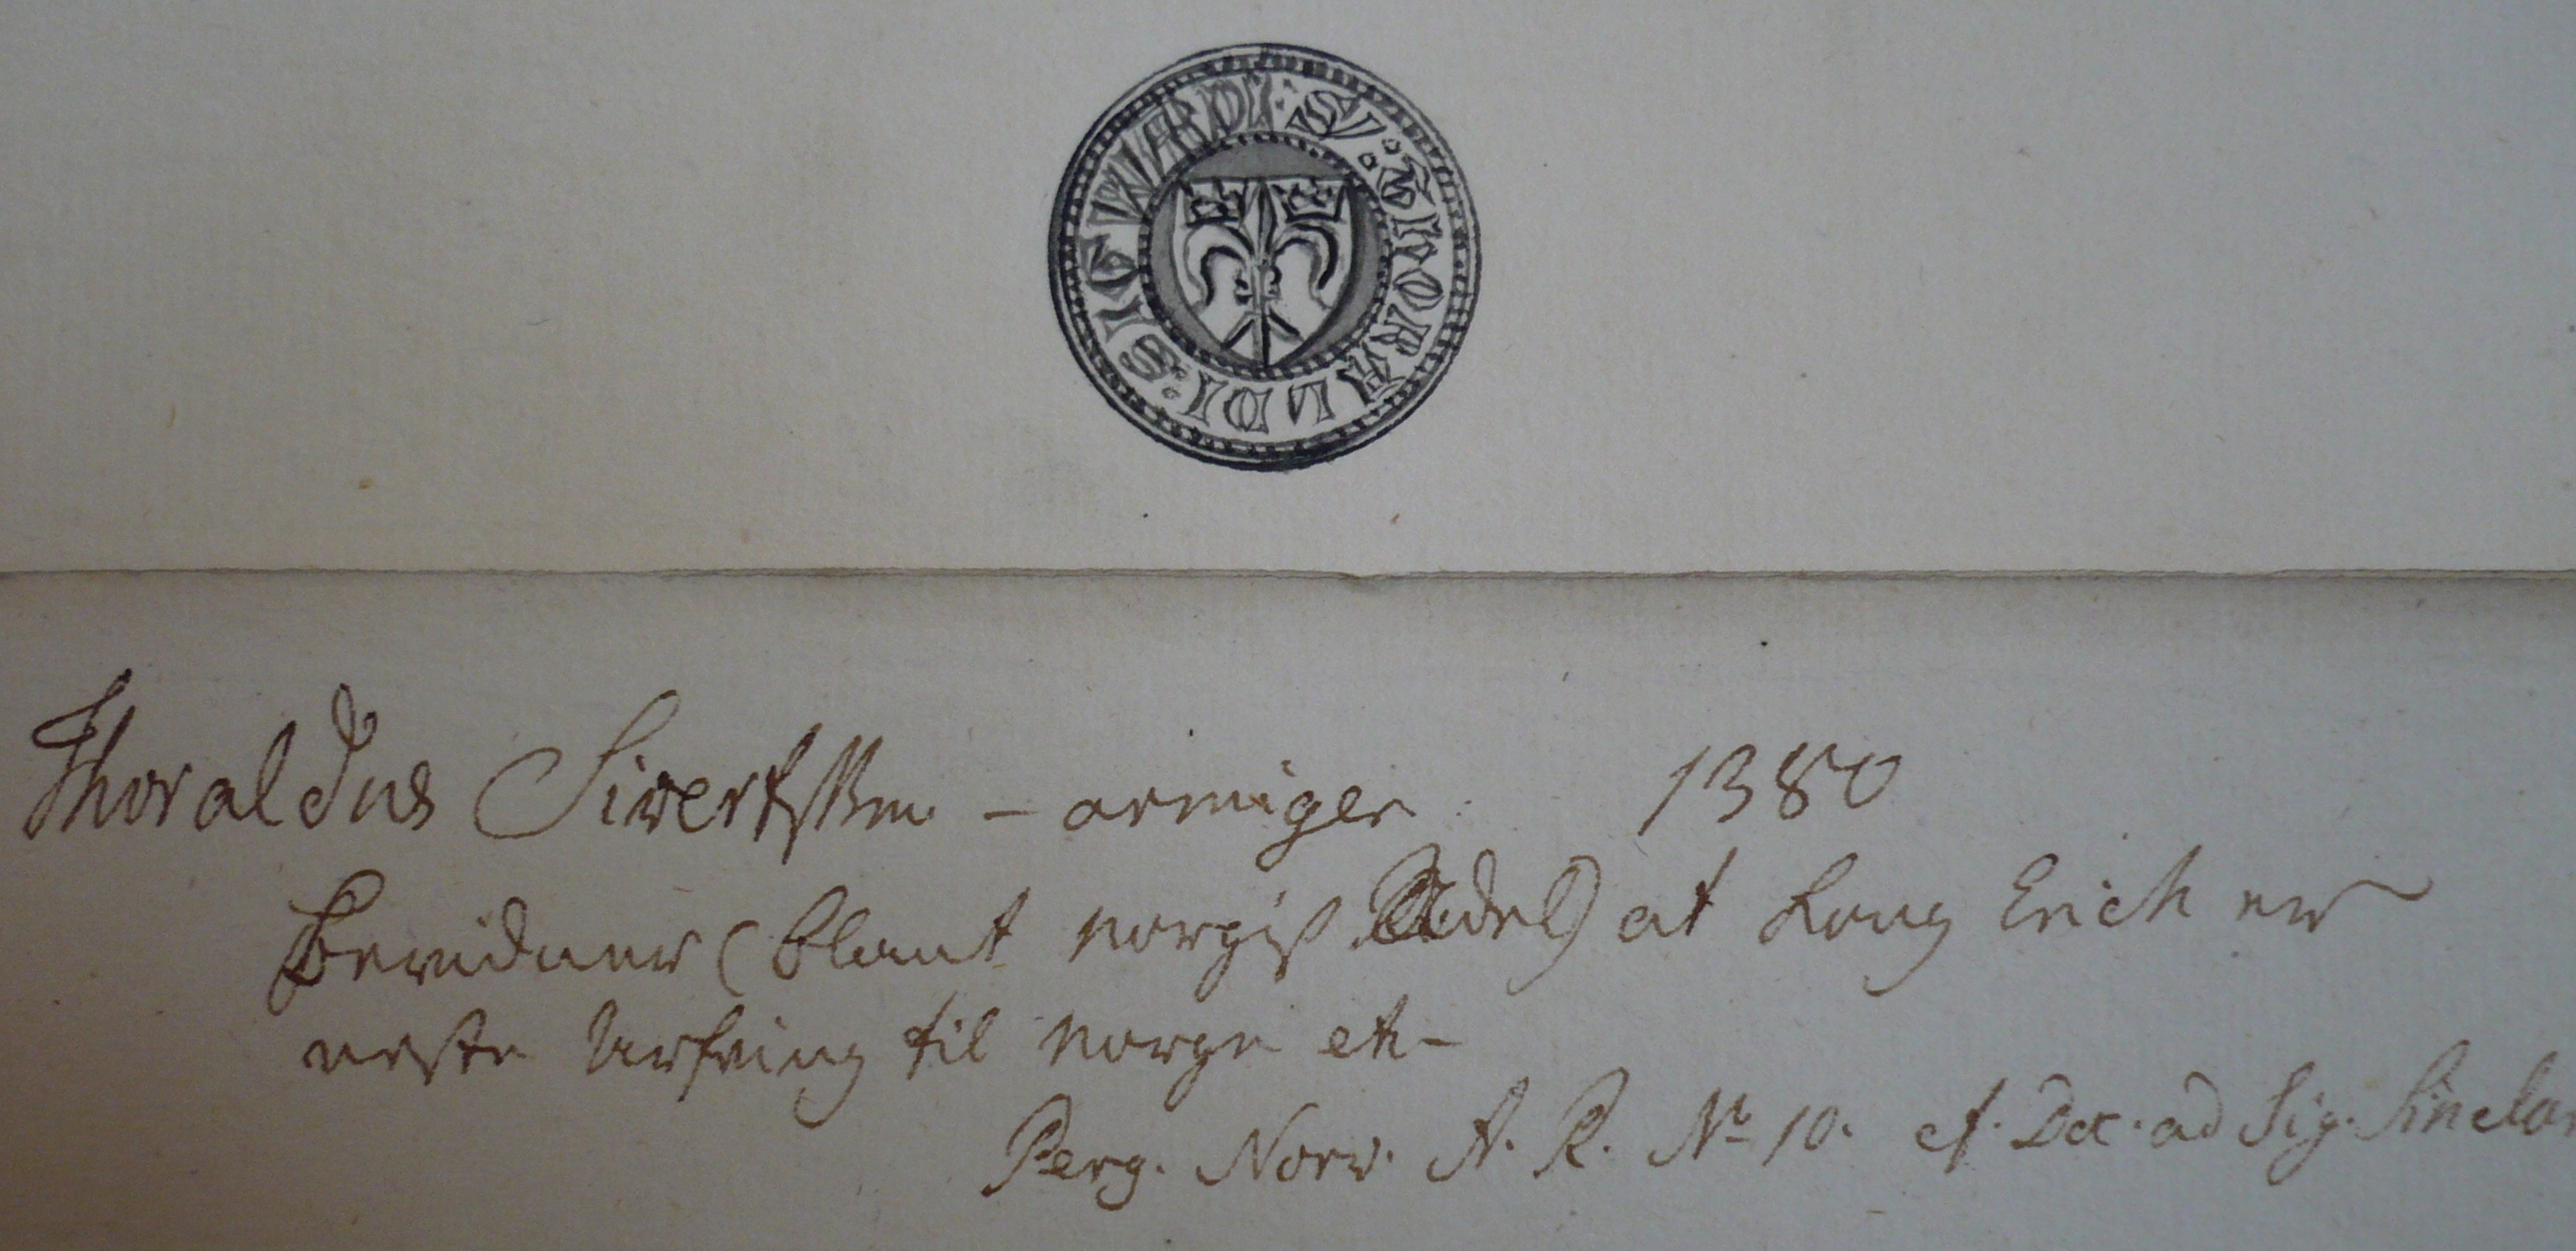 S': THORALDI: SIGWARDI
Thoraldus Sivertssen - armiger 1380
Bevidner (blant norgis Adel) at Kong Erich er
neste Arfving til Norge etc
Perg. Norv. A. R. No 10. cf. Doc. ad Sig. Sincla